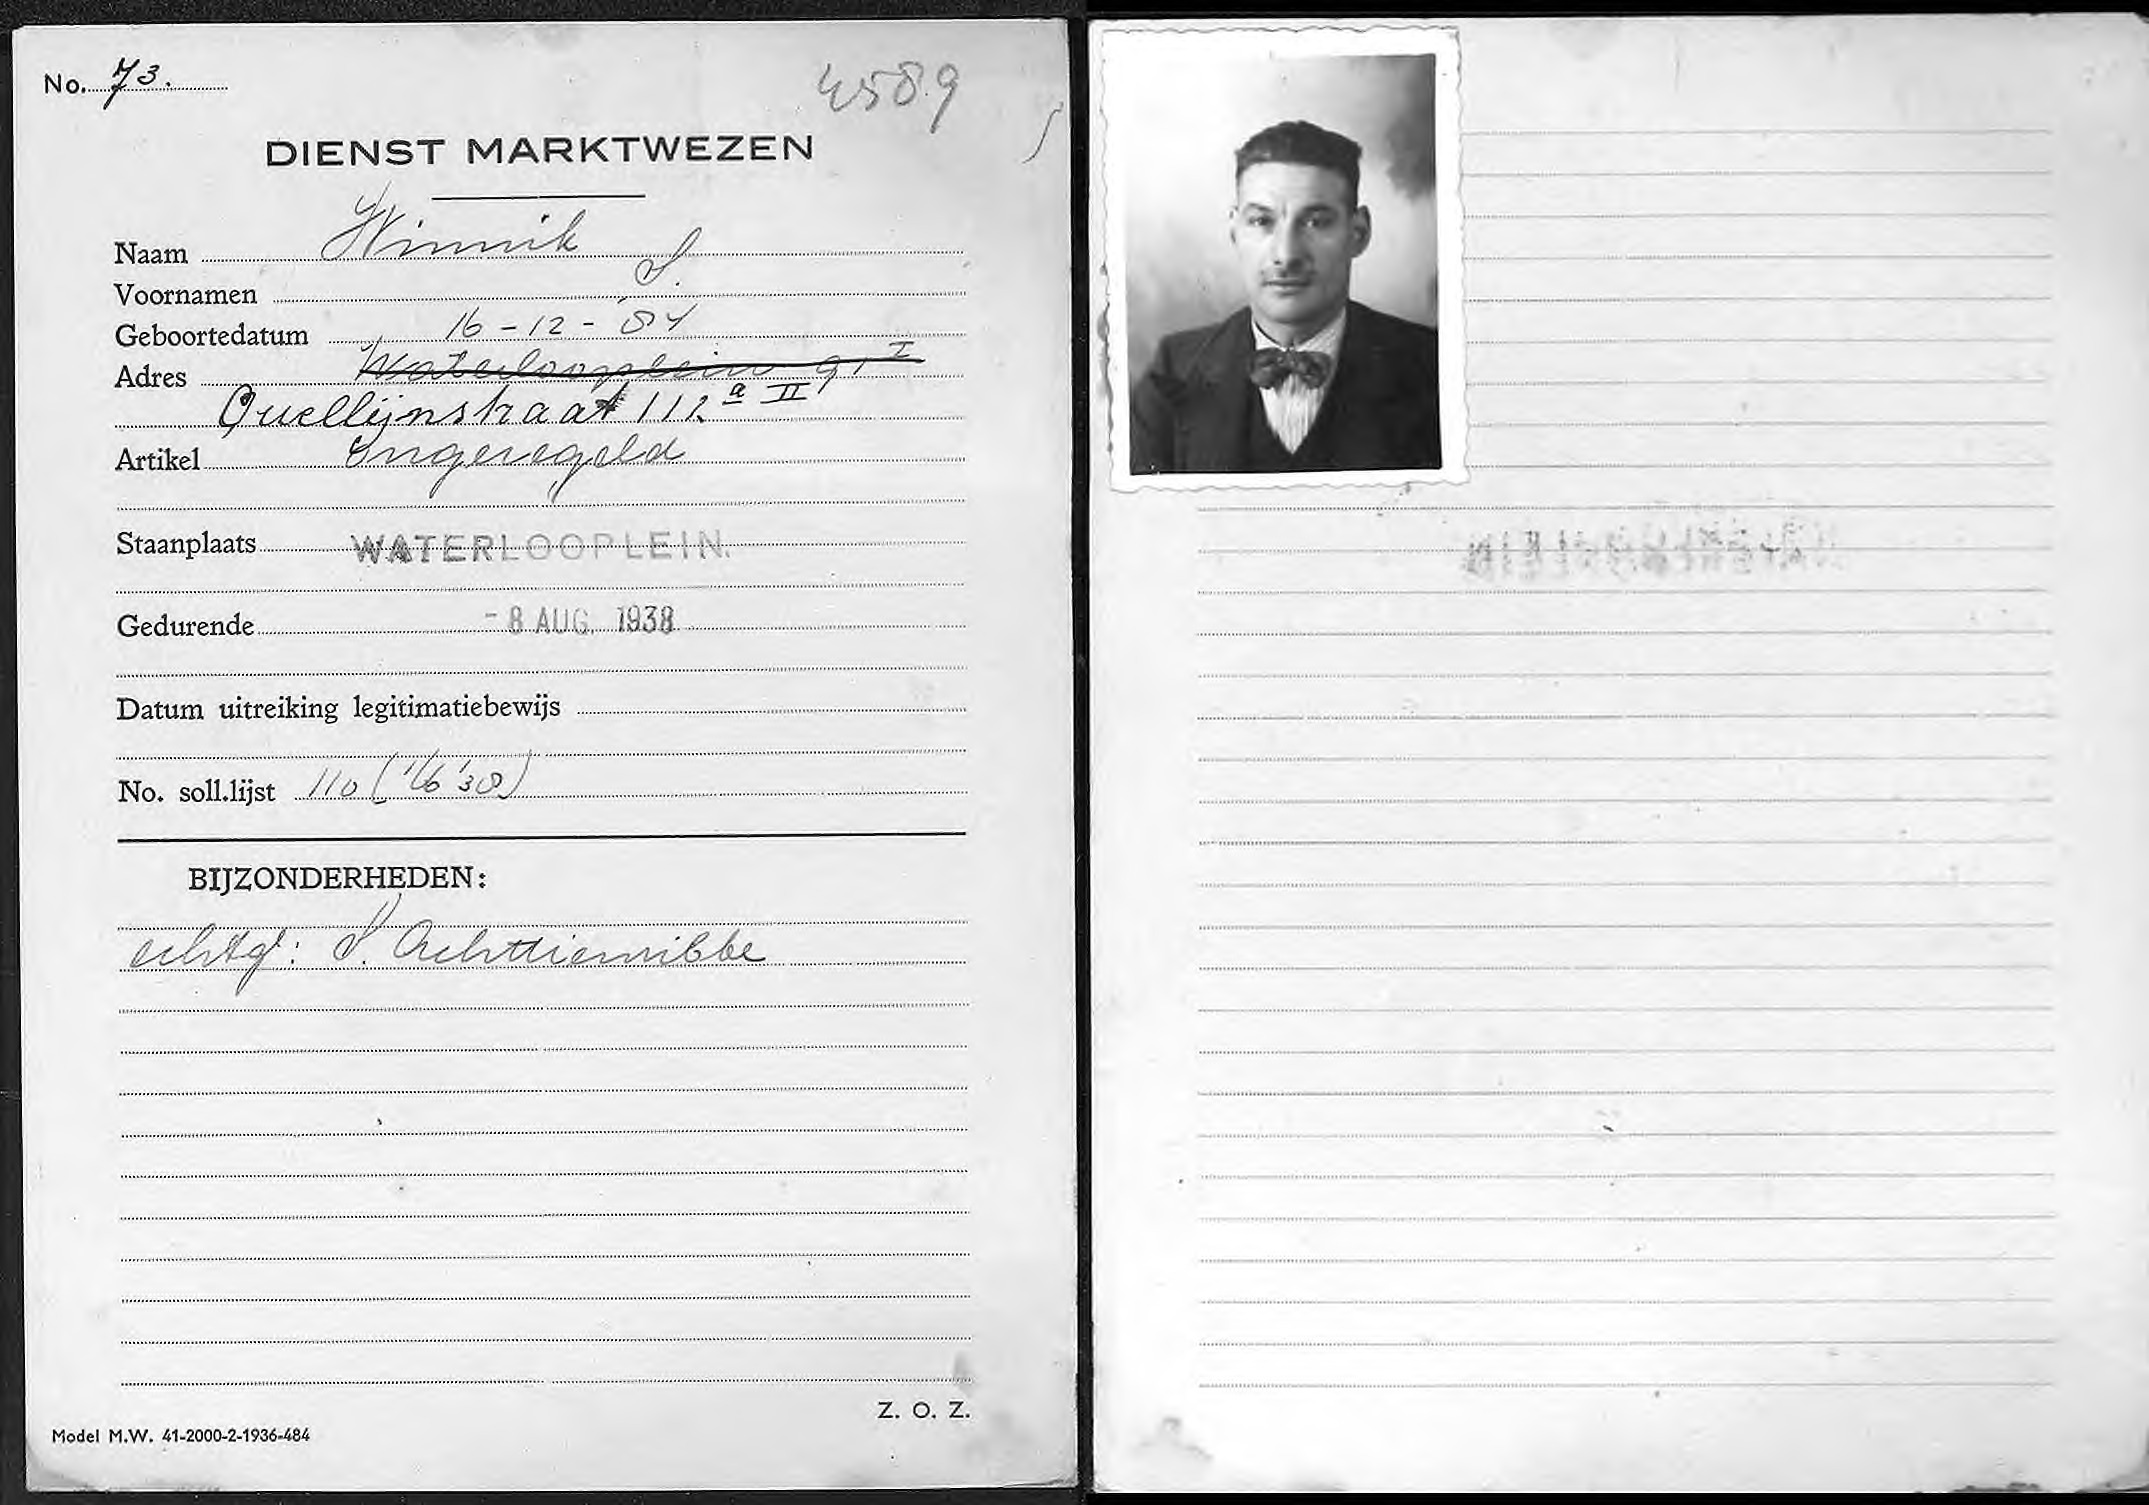 No. 73.
4589
DIENST MARKTWEZEN
Naam Winnik
Voornamen S.
Geboortedatum 16-12-'84
Adres Waterlooplein 91 I
Quellijnstraat 112 a II
Artikel Ongeregeld
Staanplaats WATERLOOPLEIN.
Gedurende - 8 AUG. 1938
Datum uitreiking legitimatiebewijs
No. soll.lijst 110 (1/6 '38)
BIJZONDERHEDEN:
echtg: S. Achttienribbe
Z. O. Z.
Model M.W. 41-2000-2-1936-484